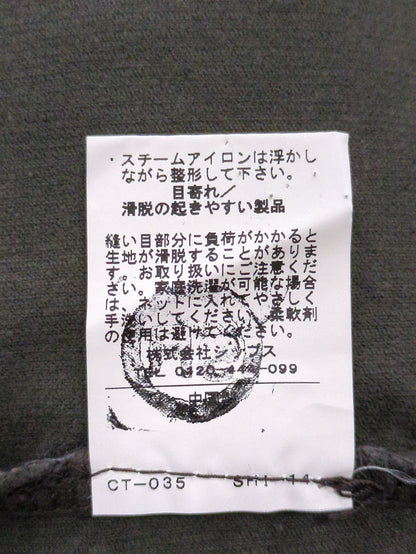 ・スチームアイロンは浮かし
ながら整形して下さい。
目寄れ／
滑脱の起きやすい製品
縫い目部分に負荷がかかると
生地が滑脱することがありま
す。お取り扱いにご注意くだ
さい。家庭洗濯が可能な場合
は、ネットに入れてやさしく
手洗いしてください。柔軟剤
の使用は避けてください。
株式会社シップス
TEL 0120-444-099
中国製
CT-035 SHI-14